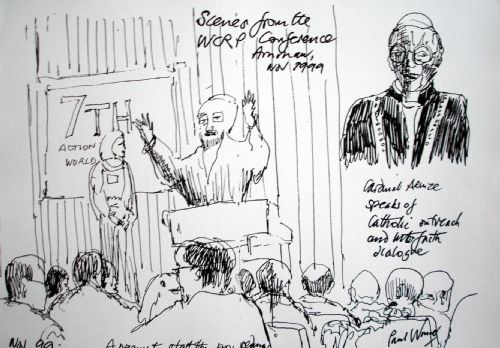 Scenes from the
WCRP Conference
Amman,
NOV 1999
7TH
ACTION
WORLD
Cardinal Arinze
speaks of
Catholic outreach
and interfaith
dialogue
NOV 99.